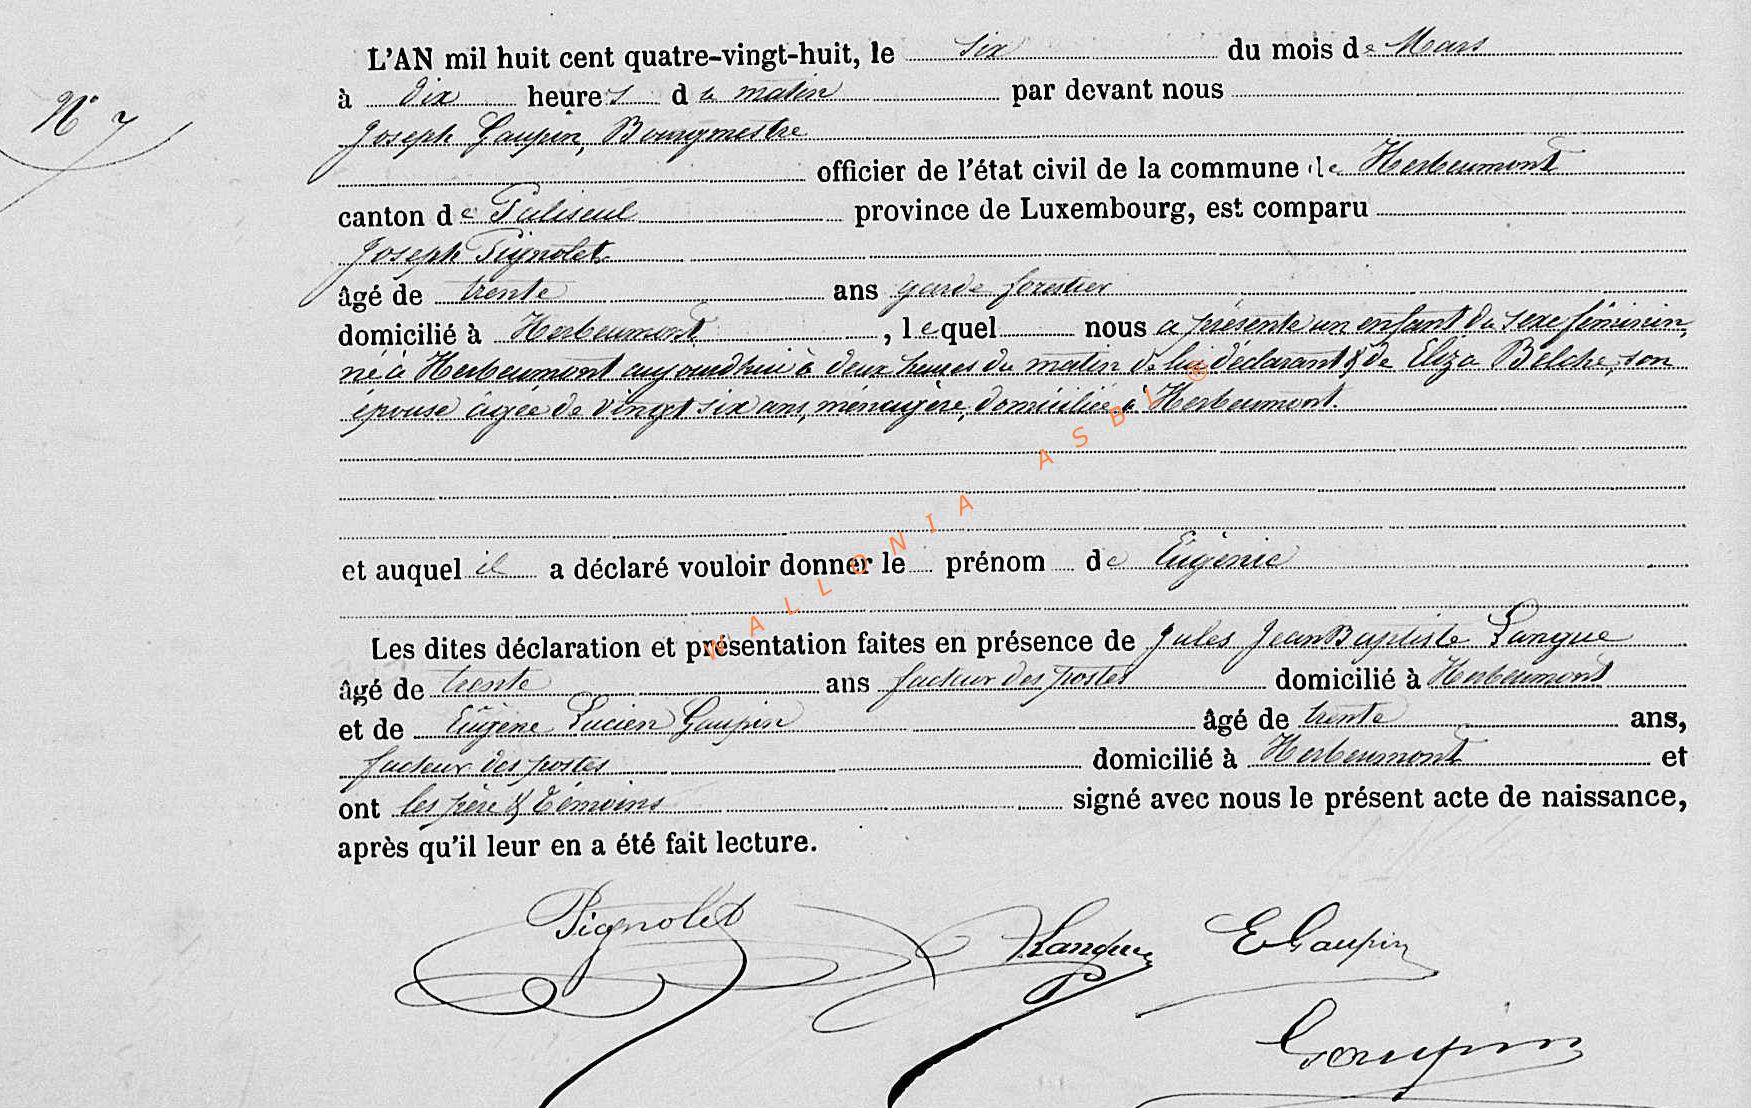 N° 7
L'AN mil huit cent quatre-vingt-huit, le six du mois de Mars
à dix heures du matin par devant nous
Joseph Gaupin, Bourgmestre
officier de l'état civil de la commune de Herbeumont
canton de Paliseul province de Luxembourg, est comparu
Joseph Pignolet
âgé de trente ans garde forestier
domicilié à Herbeumont, lequel nous a présenté un enfant du sexe féminin,
né à Herbeumont aujourd'hui à deux heures du matin de lui déclarant & de Eliza Belche, son
épouse âgée de vingt six ans, ménagère, domiciliée à Herbeumont.
et auquel il a déclaré vouloir donner le prénom de Eugénie
Les dites déclaration et présentation faites en présence de Jules Jean Baptiste Langue
âgé de trente ans facteur des postes domicilié à Herbeumont
et de Eugène Lucien Gaupin âgé de trente ans,
facteur des postes domicilié à Herbeumont et
ont les père & témoins signé avec nous le présent acte de naissance,
après qu'il leur en a été fait lecture.
Pignolet JLangue E Gaupin
Gaupin
WALLONIA ASBL ®